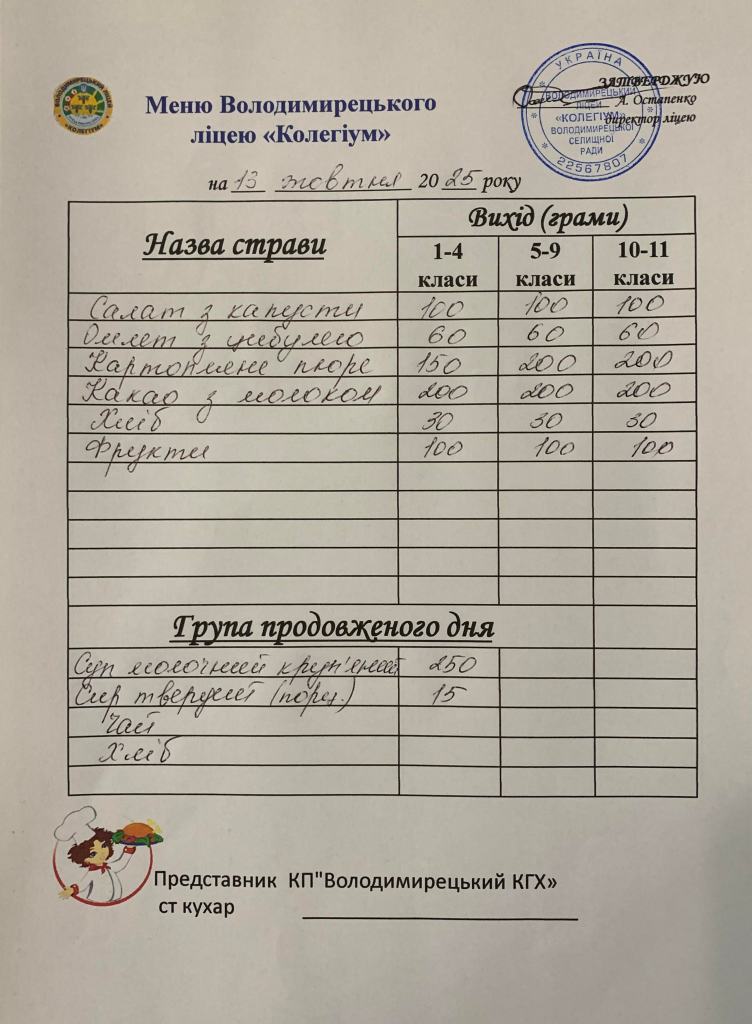 ВОЛОДИМИРЕЦЬКИЙ ЛІЦЕЙ
«КОЛЕГІУМ»
Меню Володимирецького
ліцею «Колегіум»
УКРАЇНА
ВОЛОДИМИРЕЦЬКИЙ
ЛІЦЕЙ
«КОЛЕГІУМ»
ВОЛОДИМИРЕЦЬКОЇ
СЕЛИЩНОЇ
РАДИ
22567807
ЗАТВЕРДЖУЮ
А. Остапенко
директор ліцею
на 13 жовтня 2025 року
Назва страви Вихід (грами)
1-4 класи 5-9 класи 10-11 класи
Салат з капусти 100 100 100
Омлет з цибулею 60 60 60
Картопляне пюре 150 200 200
Какао з молоком 200 200 200
Хліб 30 30 30
Фрукти 100 100 100
Група продовженого дня
Суп молочний круп'яний 250
Сир твердий (порц.) 15
Чай
Хліб
Представник КП"Володимирецький КГХ»
ст кухар